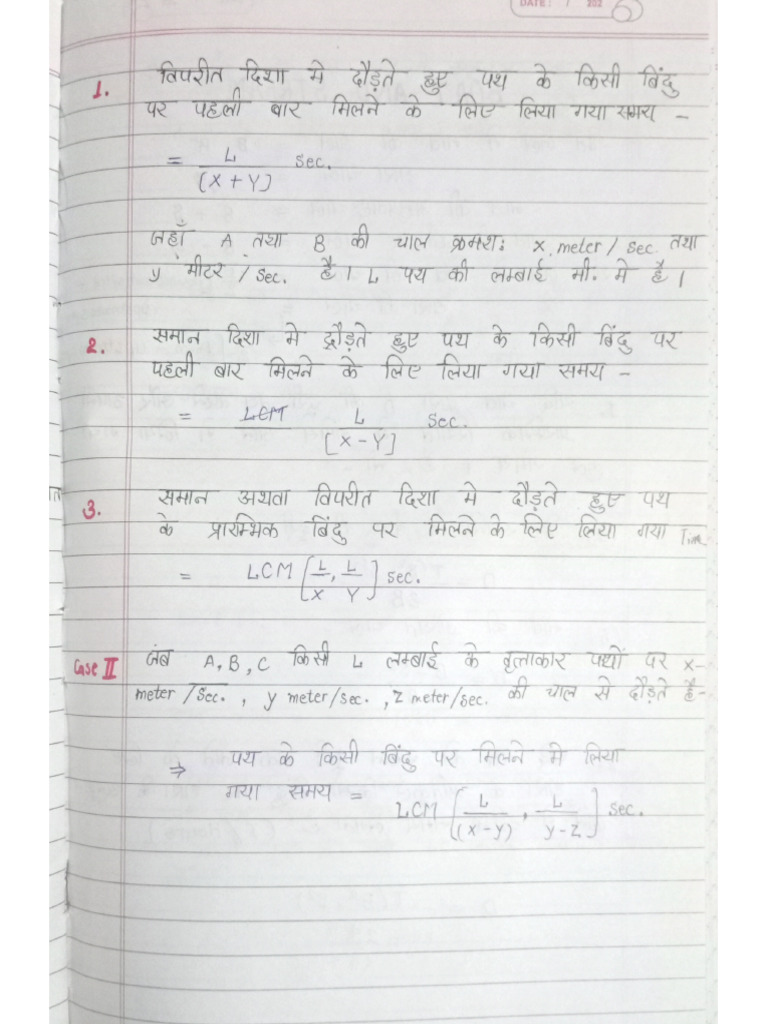 DATE: / 202 6
1. विपरीत दिशा मे दौड़ते हुए पथ के किसी बिंदु
पर पहली बार मिलने के लिए लिया गया समय -
= L/(X+Y) Sec.
जहाँ A तथा B की चाल क्रमश: x meter/sec. तथा
y मीटर/Sec. है। L पथ की लम्बाई मी. मे है।
2. समान दिशा मे दौड़ते हुए पथ के किसी बिंदु पर
पहली बार मिलने के लिए लिया गया समय -
= L/(X-Y) Sec.
3. समान अथवा विपरीत दिशा मे दौड़ते हुए पथ
के प्रारम्भिक बिंदु पर मिलने के लिए लिया गया Time
= LCM [L/X, L/Y] sec.
Case II जब A, B, C किसी L लम्बाई के वृत्ताकार पथों पर x-
meter/Sec., y meter/sec., z meter/sec. की चाल से दौड़ते है-
⇒ पथ के किसी बिंदु पर मिलने मे लिया
गया समय = LCM [L/(x-y), L/y-z] sec.